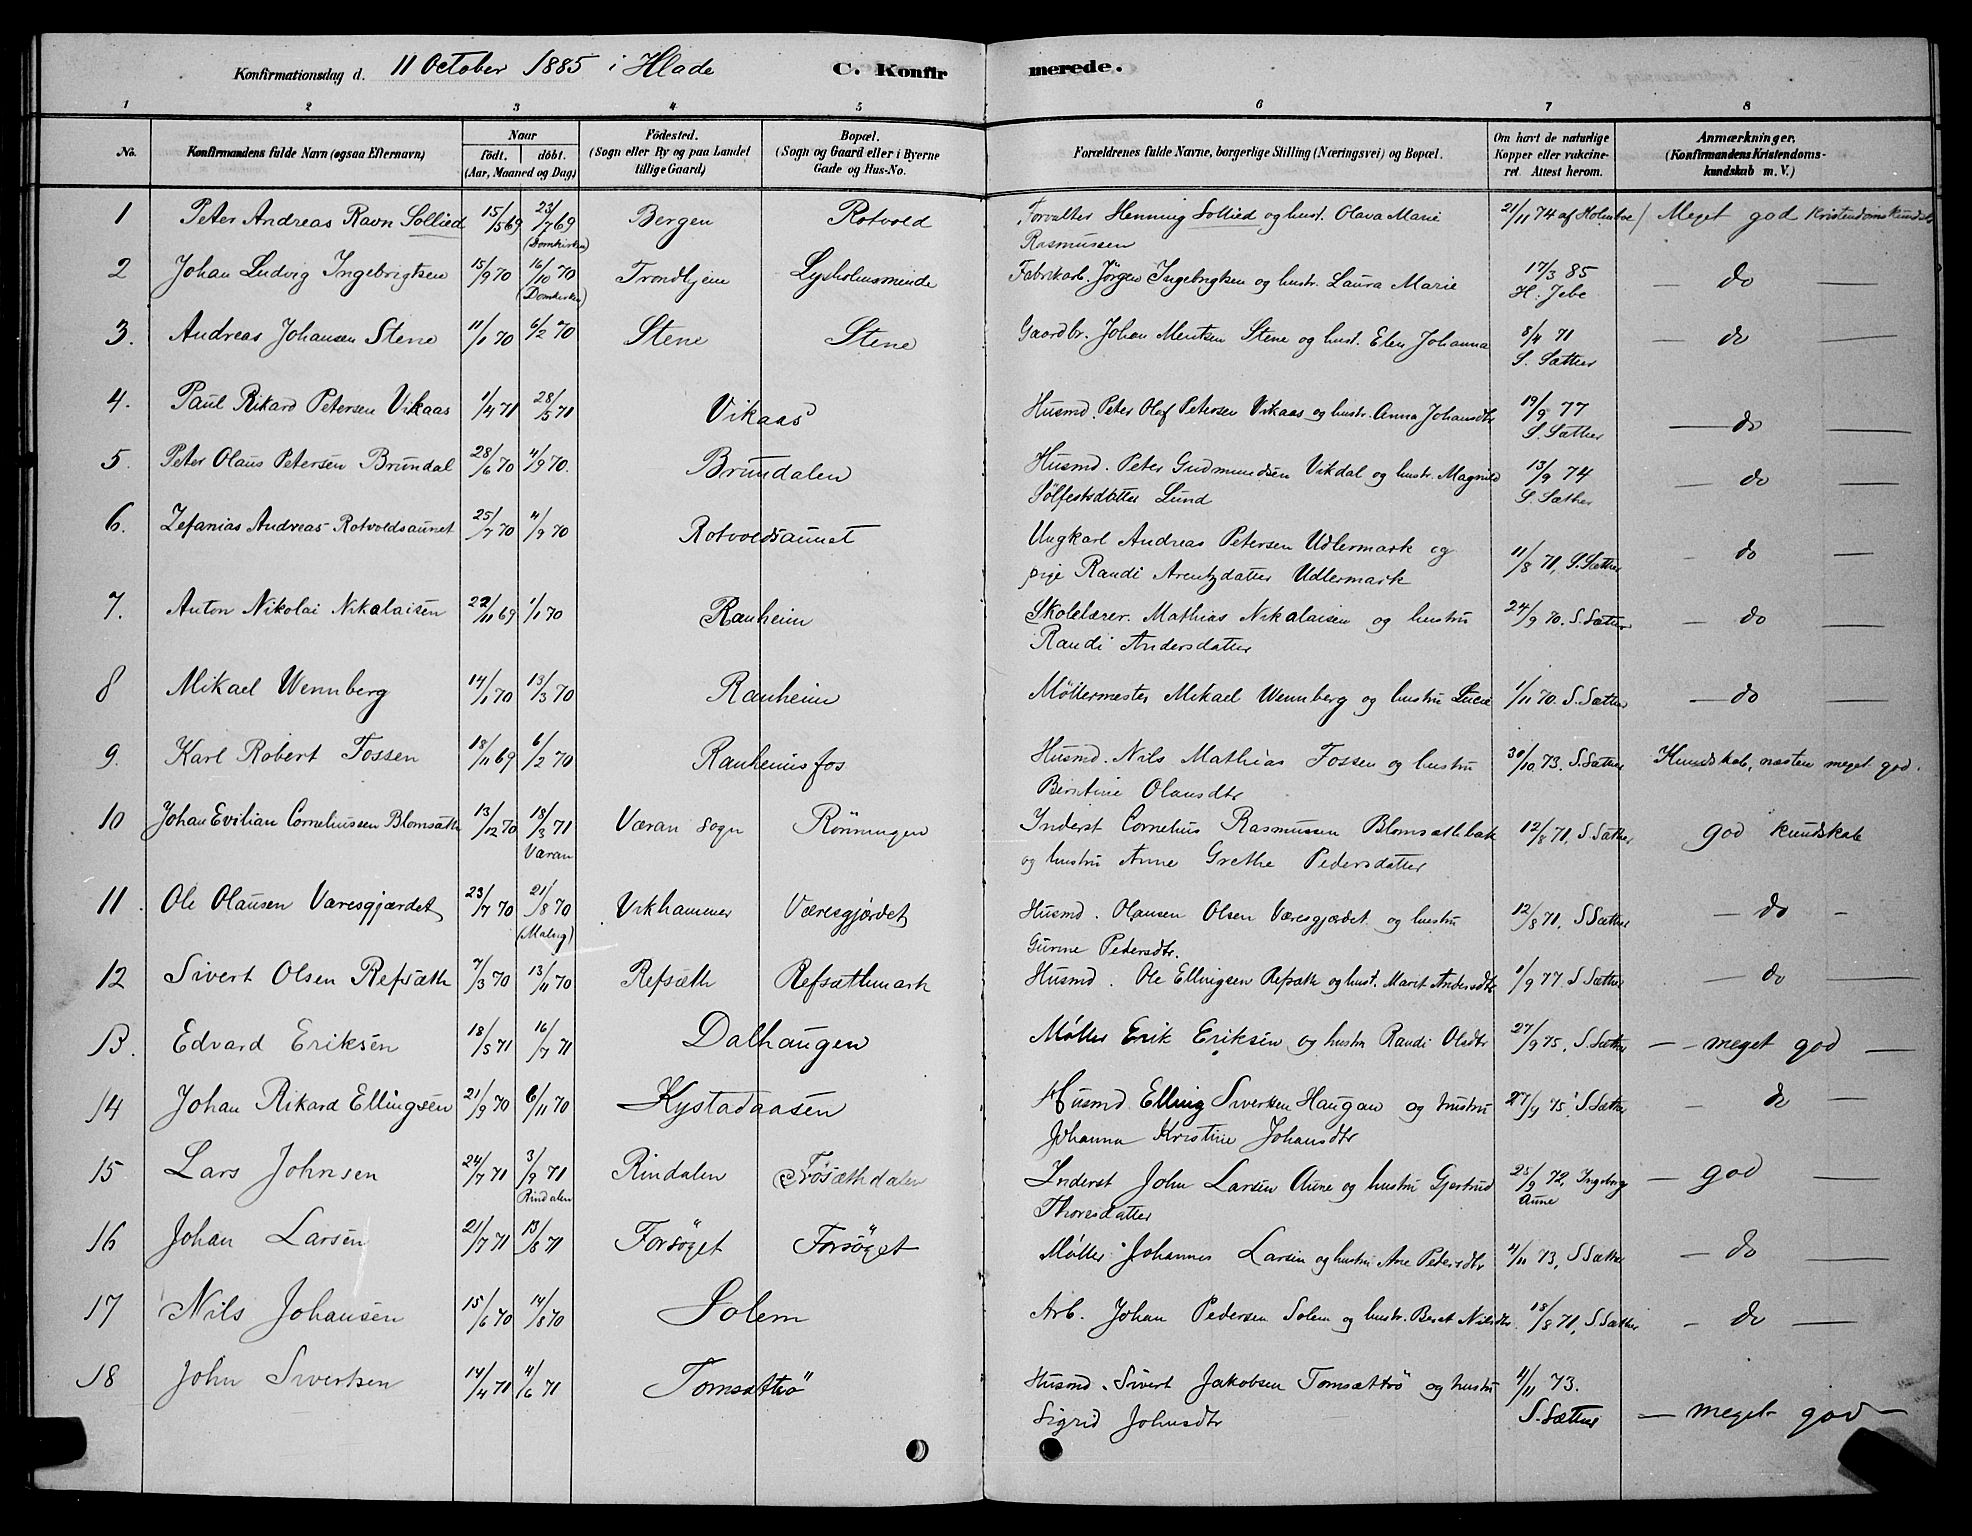 Konfirmationsdag d. 11 October 1885 i Hlade C. Konfirmerede.
1 2 3 4 5 6 7 8
No. Konfirmandens fulde Navn (ogsaa Efternavn) Naar födt. döbt. (Aar, Maaned og Dag) Födested. (Sogn eller By og paa Landet tillige Gaard) Bopæl. (Sogn og Gaard eller i Byerne Gade og Hus-No. Forældrenes fulde Navne, borgerlige Stilling (Næringsvei) og Bopæl. Om havt de naturlige Kopper eller vakcineret. Attest herom. Anmærkninger, (Konfirmandens Kristendomskundskab m. V.)
1 Peter Andreas Ravn Sollied 15/5 69 23/7 69 (Domkirken) Bergen Rotvold Forvalter Henning Sollied og hust. Olava Marie 21/11 74 af Holmboe Meget god Kristendomskundsk
Rasmussen
2 Johan Ludvig Ingebrigtsen 15/9 70 16/10 70 (Domkirken) Trondhjem Lysholmsminde Fabrikarb. Jörgen Ingebrigtsen og hustr. Laura Marie 17/3 85 H. Jebe — do —
3. Andreas Johansen Stene 11/1 70 6/2 70 Stene Stene Gaardbr. Johan Mentsen Stene og hust. Elen Johanna 8/4 71 S. Sæther — do —
4. Paul Rikard Petersen Vikaas 1/4 71 28/5 71 Vikaas Husmd. Peter Olof Petersen Vikaas og hustr. Anna Johansdtr 19/9 77 S. Sæther — do —
5. Peter Olaus Petersen Brundal 28/6 70 4/9 70. Brundalen Husmd. Peter Gudmundsen Vikdal og hustr. Magnild 13/9 74 S. Sæther — do —
Sölfestsdatter Lund
6. Zefanias Andreas Rotvoldsaunet 25/7 70 4/9 70 Rotvoldsaunet Ungkarl Andreas Petersen Udlermark og 11/8 71, S. Sæther — do —
pige Randi Arentzdatter Udlermark
7. Anton Nikolai Nikalaisen 22/11 69 1/1 70 Ranheim Skolelærer. Mathias Nikalaisen og hustru 24/9 70. S. Sæther — do —
Randi Andersdatter
8 Mikael Wennberg 14/1 70 13/3 70 Ranheim Möllermester Mikael Wennberg og hustru Lucie 1/11 70. S. Sæther — do —
9. Karl Robert Fossen 18/11 69 6/2 70 Ranheimsfos Husmd. Nils Mathias Fossen og hustru 30/10 73. S. Sæther Kundskab, næsten meget god.
Berntine Olausdtr
10 Johan Evilian Corneliussen Blomsæth 13/12 70 18/3 71 Væran Væran Sogn Rönningen Inderst Cornelius Rasmussen Blomsætlibak 12/8 71, S Sæther god kundskab
og hustru Anne Grethe Pedersdatter
11. Ole Olausen Væresgjærdet 23/7 70 21/8 70 (Malvig) Vikhammer Væresgjördet Husmd. Olausen Olsen Væresgjærdet og hustru 12/8 71, S Sæther — do —
Gurine Pedersdtr.
12 Sivert Olsen Refsæth 7/3 70 13/11 70 Refsæth Refsæthmark Husmd. Ole Ellingsen Refsæth og hust. Marit Andersdtr 1/9 77. S Sæther — do —
13. Edvard Eriksen 18/5 71 16/7 71 Dalhaugen Möller Erik Eriksen og hustru Randi Olsdtr 27/9 75, S Sæther — meget god —
14 Johan Rikard Ellingsen 21/9 70 6/11 70 Kystadaasen Husmd. Elling Siversen Haugan og hustru 27/9 75, S. Sæther — do —
Johanna Kristine Johansdtr
15 Lars Johnsen 24/7 71 3/9 71 Rindalen Rindalen Fösæthdalen Inderst John Larsen Aune og hustru Gjertrud 25/9 72, Ingeborg Aune — god —
Thoresdatter
16 Johan Larsen 21/7 71 13/8 71 Forsöget Forsöget Möller Johannes Larsen og hustru Ane Pedersdtr 4/11 73, S Sæther — do —
17 Nils Johansen 15/6 70 14/8 70 Solem Arb. Johan Pedersen Solem og hustr. Beret Nilsdtr. 18/8 71, S Sæther — do —
18 John Sivertsen 14/4 71 4/6 71 Tomsættrö Husmd. Sivert Jakobsen Tomsættrö og hustru 4/11 73. S. Sæther — meget god —
Sigrid Johnsdtr